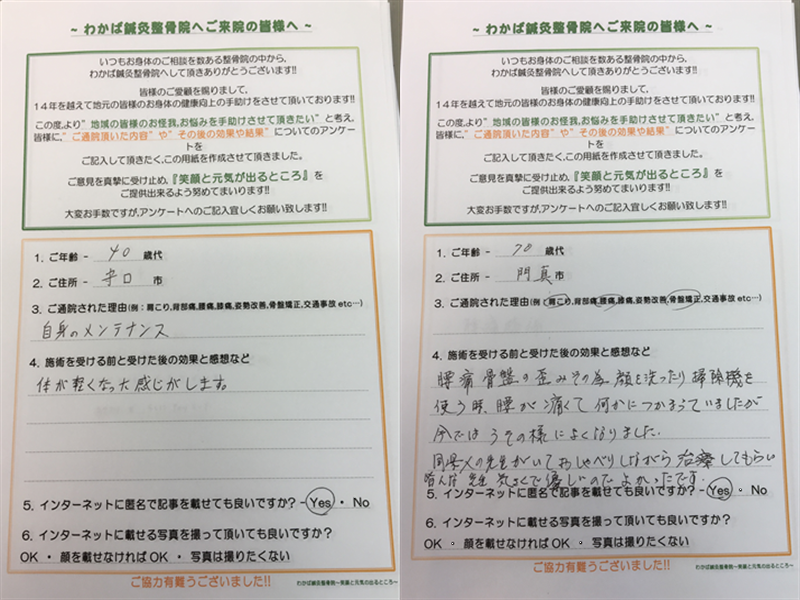 ~ わかば鍼灸整骨院へご来院の皆様へ ~
いつもお身体のご相談を数ある整骨院の中から、
わかば鍼灸整骨院へして頂きありがとうございます!!
皆様のご愛顧を賜りまして、
14年を越えて地元の皆様のお身体の健康向上の手助けをさせて頂いております!!
この度、より“地域の皆様のお怪我、お悩みを手助けさせて頂きたい”と考え、
皆様に、“ご通院頂いた内容”や“その後の効果や結果”についてのアンケー
トを
ご記入して頂きたく、この用紙を作成させて頂きました。
ご意見を真摯に受け止め、『笑顔と元気が出るところ』を
ご提供出来るよう努めてまいります!!
大変お手数ですが、アンケートへのご記入宜しくお願い致します!!
1. ご年齢 - 40 歳代
2. ご住所 - 守口 市
3. ご通院された理由(例:肩こり,背部痛,腰痛,膝痛,姿勢改善,骨盤矯正,交通事故etc…)
自身のメンテナンス
4. 施術を受ける前と受けた後の効果と感想など
体が軽くなった感じがします。
5. インターネットに匿名で記事を載せても良いですか? - Yes ・ No
6. インターネットに載せる写真を撮って頂いても良いですか?
OK ・ 顔を載せなければOK ・ 写真は撮りたくない
ご協力有難うございました!!
わかば鍼灸整骨院~笑顔と元気の出るところ~
~ わかば鍼灸整骨院へご来院の皆様へ ~
いつもお身体のご相談を数ある整骨院の中から、
わかば鍼灸整骨院へして頂きありがとうございます!!
皆様のご愛顧を賜りまして、
14年を越えて地元の皆様のお身体の健康向上の手助けをさせて頂いております!!
この度、より“地域の皆様のお怪我、お悩みを手助けさせて頂きたい”と考え、
皆様に、“ご通院頂いた内容”や“その後の効果や結果”についてのアンケー
トを
ご記入して頂きたく、この用紙を作成させて頂きました。
ご意見を真摯に受け止め、『笑顔と元気が出るところ』を
ご提供出来るよう努めてまいります!!
大変お手数ですが、アンケートへのご記入宜しくお願い致します!!
1. ご年齢 - 70 歳代
2. ご住所 - 門真 市
3. ご通院された理由(例:肩こり,背部痛,腰痛,膝痛,姿勢改善,骨盤矯正,交通事故etc…)
4. 施術を受ける前と受けた後の効果と感想など
腰痛骨盤の歪みその為顔を洗ったり掃除機を
使う時、腰が痛くて何かにつかまっていましたが
今ではうその様によくなりました.
の先生がいておしゃべりしながら治療してもらい
皆んな先生 気さくで優しいのでよかったです.
5. インターネットに匿名で記事を載せても良いですか? - Yes ・ No
6. インターネットに載せる写真を撮って頂いても良いですか?
OK ・ 顔を載せなければOK ・ 写真は撮りたくない
ご協力有難うございました!!
わかば鍼灸整骨院~笑顔と元気の出るところ~